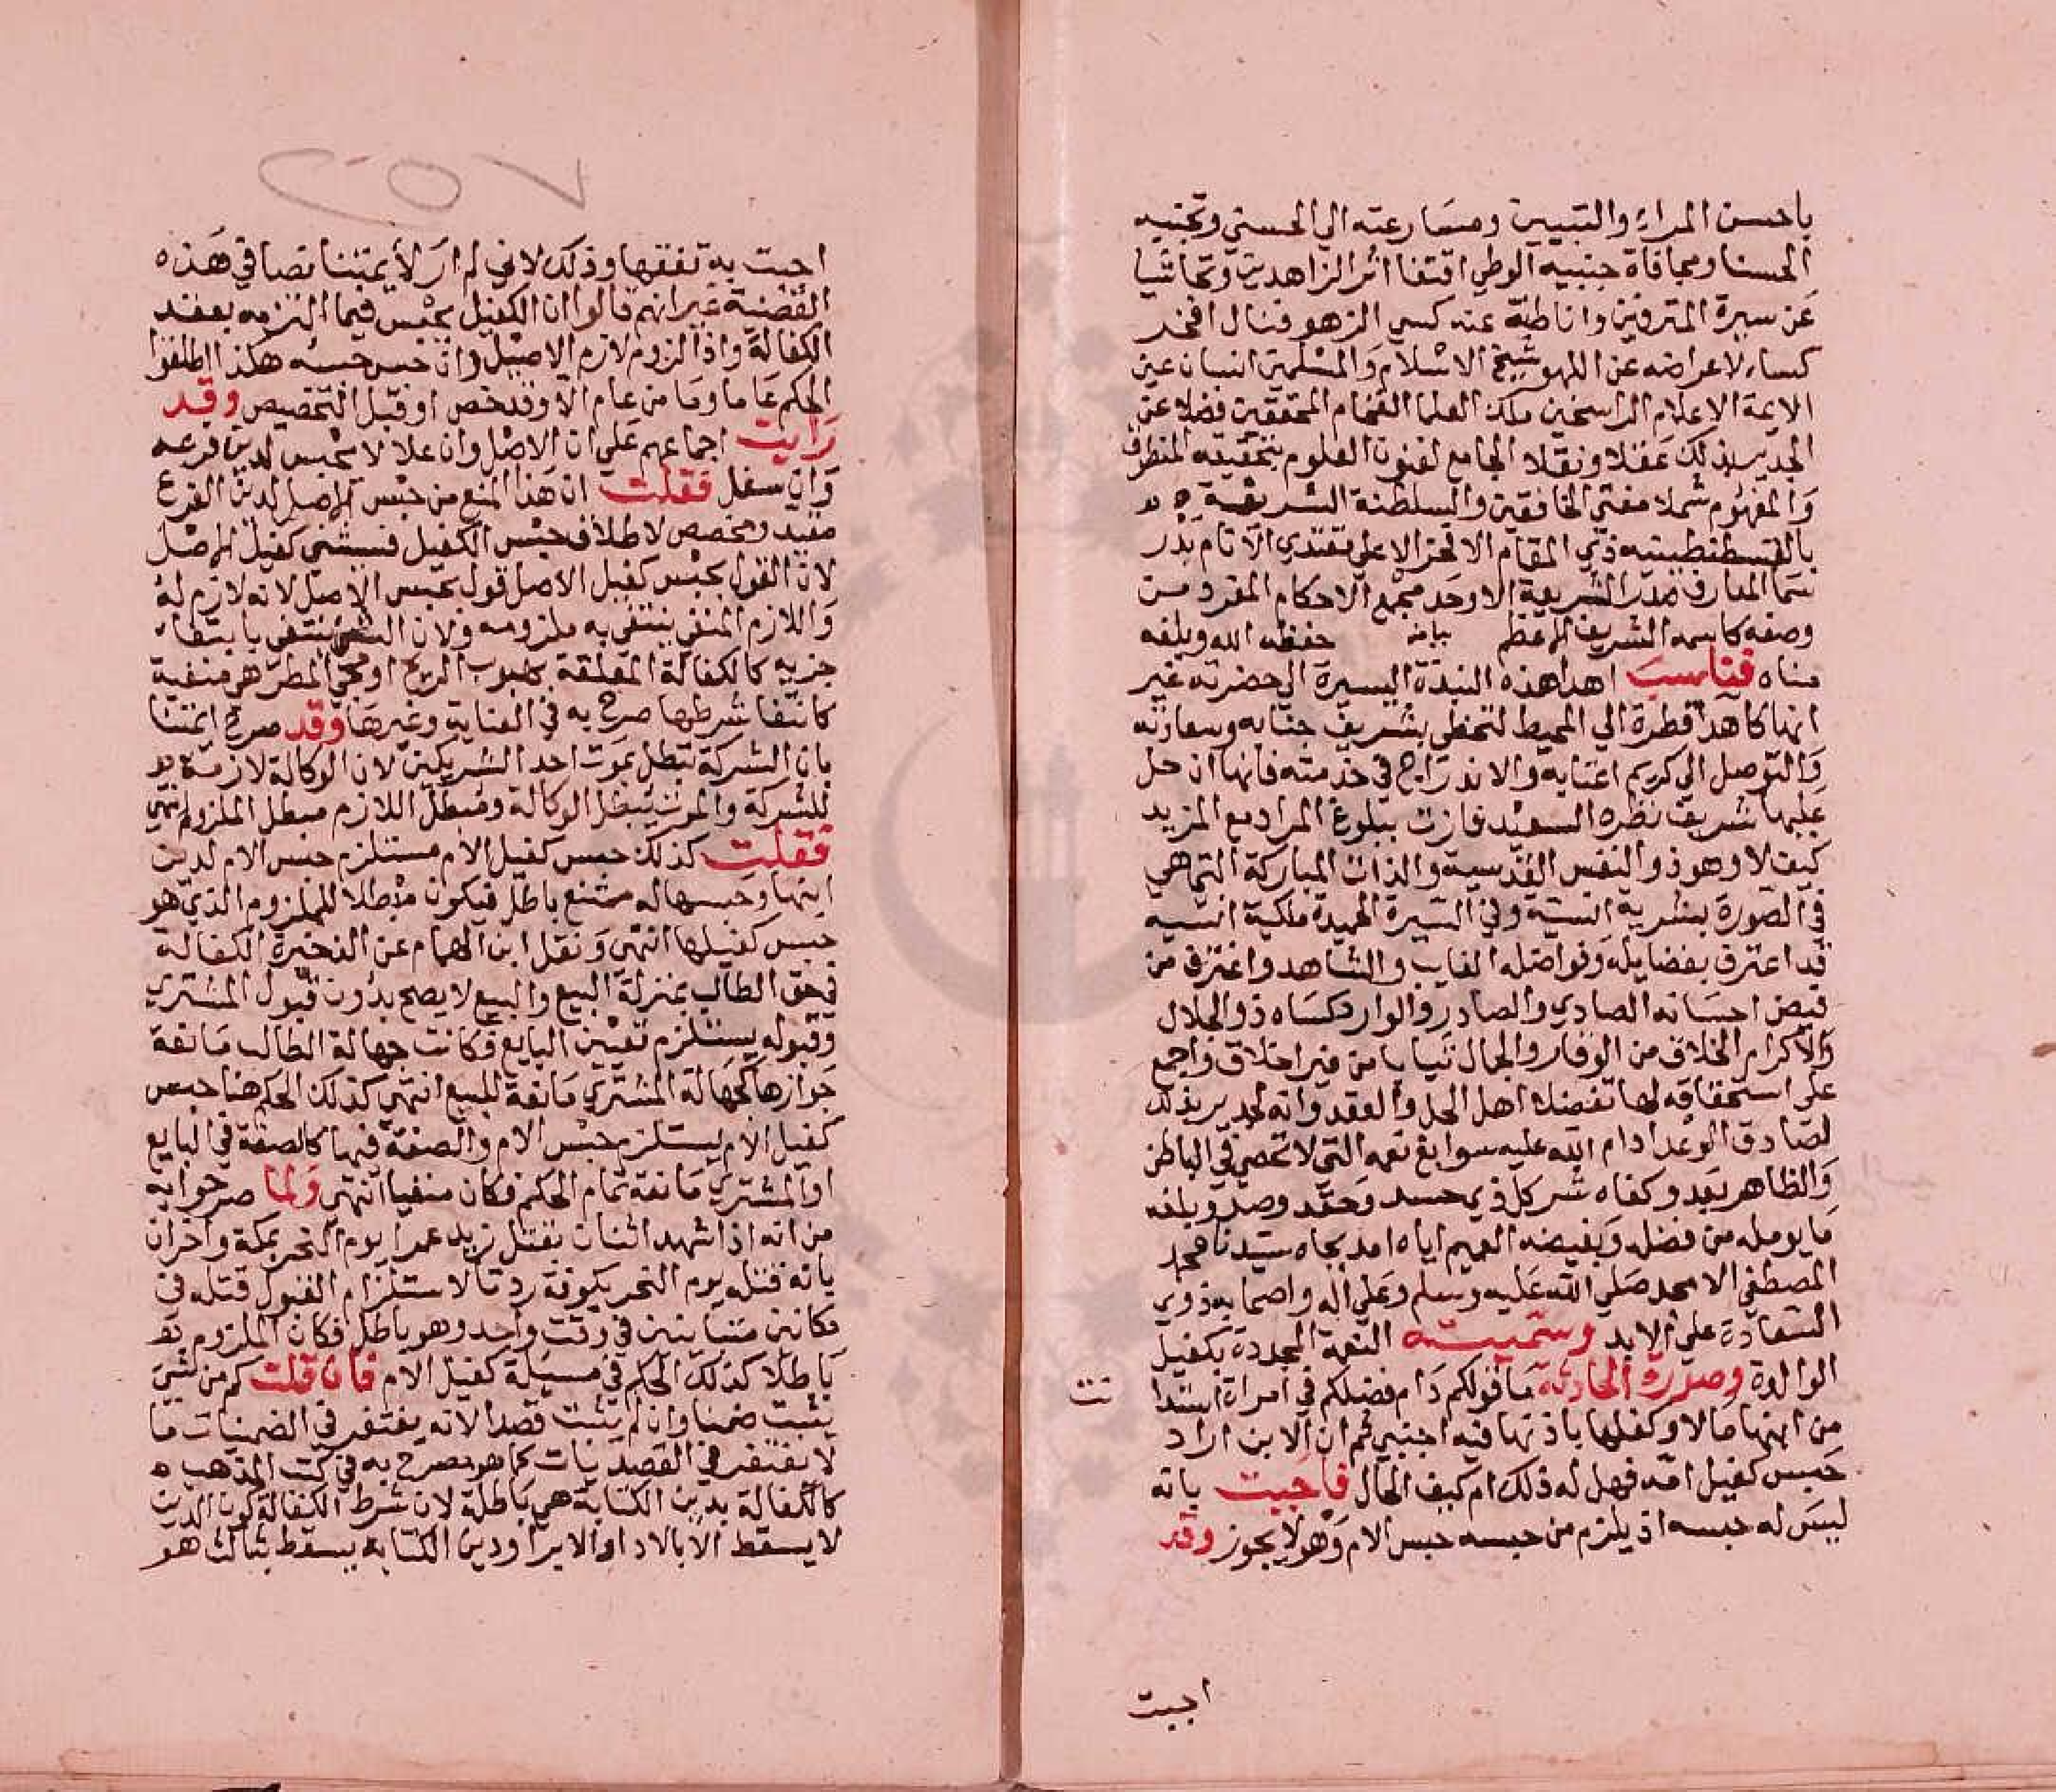 باحسن المراء والتبيين ومسارعته الي الحسني وتجنبه
الحسنا ومجافاة جنبيه الوطي اقتفا اثر الزاهدين وتحاشيا
عن سيرة المترفين واناطة عنه كسي الزهو فنال افخر
كساء لاعراضه عن اللهو شيخ الاسلام والمسلمين انسان عين
الايمة الاعلام الراسخين ملك العلما الفخام المحققين فضلا عن
الجدير بذلك عقلا ونقلا الجامع لفنون العلوم بتحقيقه المنطوق
والمفهوم شملا مفتي الخافقين والسلطنة الشريفة
بالقسطنطينيه ذي المقام الافخر الاعلي مقتدي الانام بدر
سما المعارف صدر الشريعة الاوحد مجمع الاحكام المفرد من
وصفه كاسمه الشريف المعظم حفظه الله وبلغه
مناه فناسب اهدا هذه النبذة اليسيرة الي حضرته غير
انها كاهدا قطرة الي المحيط لتحظي بشريف جنابه وسعادته
والتوصل الي كريم اعتابه والاندراج في خدمته فانها ان حل
عليها شريف نظره السعيد فازت ببلوغ المراد مع المزيد
كيف لا وهو ذو النفس القدسية والذات المباركة التي هي
في الصورة بشرية انسية وفي السيرة الحميدة ملكية انسيه
قد اعترف بفضايله وفواضله الغايب والشاهد واغترف من
فيض احسانه الصادي والصادر والوارد كساه ذو الجلال
والاكرام الخلاق من الوقار والجمال ثيابا من غير اخلاق واجمع
علي استحقاقه لها تفضلا اهل الحل والعقد وانه لجدير بذلك
لصادق الوعد ادام الله عليه سوابغ نعمه التي لا تحصي في الباطن
والظاهر بعد وكفاه شر كل ذي حسد وحقد وصد وبلغه
ما يومله من فضله وبفيضه العميم اياه امد بجاه سيدنا محمد
المصطفي الامجد صلي الله عليه وسلم وعلي اله واصحابه ذوي
السعادة علي الابد وسميته النعمة المجددة بكفيل
الوالدة وصورة الحادثة ما قولكم دام فضلكم في امراة استدا
نت
من ابنها مالا وكفلها باذنها فيه اجنبي ثم ان الابن اراد
حبس كفيل امه فهل له ذلك ام كيف الحال فاجبت بانه
ليس له حبسه اذ يلزم من حبسه حبس الام وهو لا يجوز وقد
اجبت
٢٥٧
اجبت به تفقها وذلك لاني لم ار لأيمتنا نصا في هذه
القضية غير انهم قالوا ان الكفيل يحبس فيما التزمه بعقد
الكفالة واذا لزوم لازم الاصيل وان حبس حبسه هكذا اطلقوا
الحكم عاما وما من عام الا وقد خص او قبل التخصيص وقد
رايت اجماعهم علي ان الاصل وان علا لا يحبس لدين فرعه
وان سفل فقلت ان هذا المنع من حبس الاصل لدين الفرع
مقيد ومخصص لاطلاق حبس الكفيل فيستثني كفيل الاصل
لان القول بحبس كفيل الاصل قول بحبس الاصل لانه لازم له
واللازم المنفي ينتفي به ملزومه ولان الشي ينتفي بانتفاء
جزيه كالكفالة المعلقة بهبوب الريح او مجي المطر هي منفية
كانتفا شرطها صرح به في العناية وغيرها وقد صرح ايمتنا
بان الشركة تبطل بموت احد الشريكين لان الوكالة لازمة
للشركة والموت يبطل الوكالة ومبطل اللازم مبطل الملزوم انتهي
فقلت كذلك حبس كفيل الام مستلزم حبس الام لدين
ابنها وحبسها له ممتنع باطل فيكون مبطلا للملزوم الذي هو
حبس كفيلها انتهي ونقل ابن الهمام عن الذخيرة الكفالة
في حق الطالب بمنزلة البيع والبيع لا يصح بدون قبول المشتري
وقبوله يستلزم تعيين البايع فكانت جهالة الطالب مانعة
جوازها كجهالة المشتري مانعة للبيع انتهي كذلك الحكم هنا حبس
كفيل الام يستلزم حبس الام والصفة فيها كالصفة في البايع
او المشتري مانعة تمام الحكم فكان منفيا انتهي ولما صرحوا به
من انه اذا شهد اثنان بقتل زيد عمرا يوم النحر بمكة واخران
بانه قتله يوم النحر بكوفة ردتا لاستلزام القبول قتله في
مكانين متباينين في وقت واحد وهو باطل فكان الملزوم
باطلا كذلك الحكم في مسيلة كفيل الام فان قلت كم من شي
يثبت ضمنا وان لم يثبت قصدا لانه يغتفر في الضمنيات ما
لا يغتفر في القصديات كما هو مصرح به في كتب المذهب
كالكفالة بدين الكتابة هي باطلة لان شرط الكفالة كون الدين
لا يسقط الا بالاداء او الابرا ودين الكتابة يسقط بثالث هو